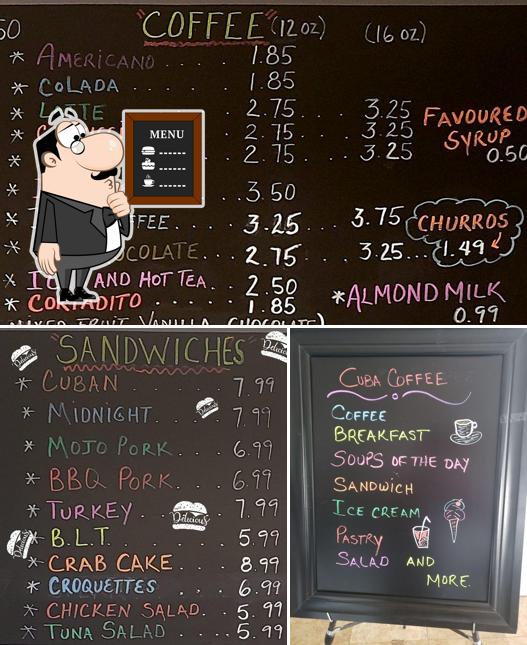 50 "COFFEE" (12 oz) (16 oz)
* AMERICANO . . . . . 1.85
* COLADA . . . . . 1.85
* LATTE 2.75 3.25
2.75 . . . 3.25
* 2.75 . . . 3.25
FAVOURED
SYRUP
0.50
MENU
* 3.50
* FEE . . . 3.25 . . . 3.75
CHURROS
1.49
* COLATE . . 2.75 . . . 3.25...
* AND HOT TEA . . 2.50
* CORTADITO . . . . 1.85
*ALMOND MILK
0.99
MIXED FRUIT, VANILLA, CHOCOLATE)
"SANDWICHES"
* CUBAN . . . . . 7.99
* MIDNIGHT . . . 7.99
* MOJO PORK . . . 6.99
* BBQ PORK . . . 6.99
* TURKEY . . . 7.99
Delicious
* B.L.T. . . . . 5.99
* CRAB CAKE . . . 8.99
* CROQUETTES . . . 6.99
* CHICKEN SALAD. . . 5.99
* TUNA SALAD . . . . 5.99
CUBA COFFEE
COFFEE
BREAKFAST
SOUPS OF THE DAY
SANDWICH
ICE CREAM
PASTRY
SALAD AND
MORE